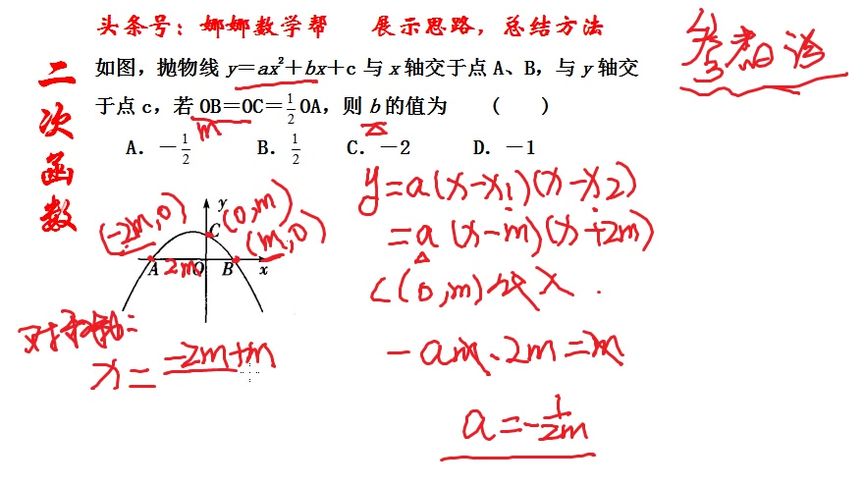 头条号：娜娜数学帮 展示思路，总结方法
二次函数
如图，抛物线 y＝ax²＋bx＋c 与 x 轴交于点 A、B，与 y 轴交
于点 c，若 OB＝OC＝1/2 OA，则 b 的值为 （ ）
m
A．－1/2 B．1/2 C．－2 D．－1
y=a(x-x₁)(x-x₂)
=a(x-m)(x+2m)
C(0,m)代入.
-am·2m=m
a=-1/2m
(-2m,0) (0,m) (m,0)
y
C
A 2m O B x
对称轴:
x=-2m+m